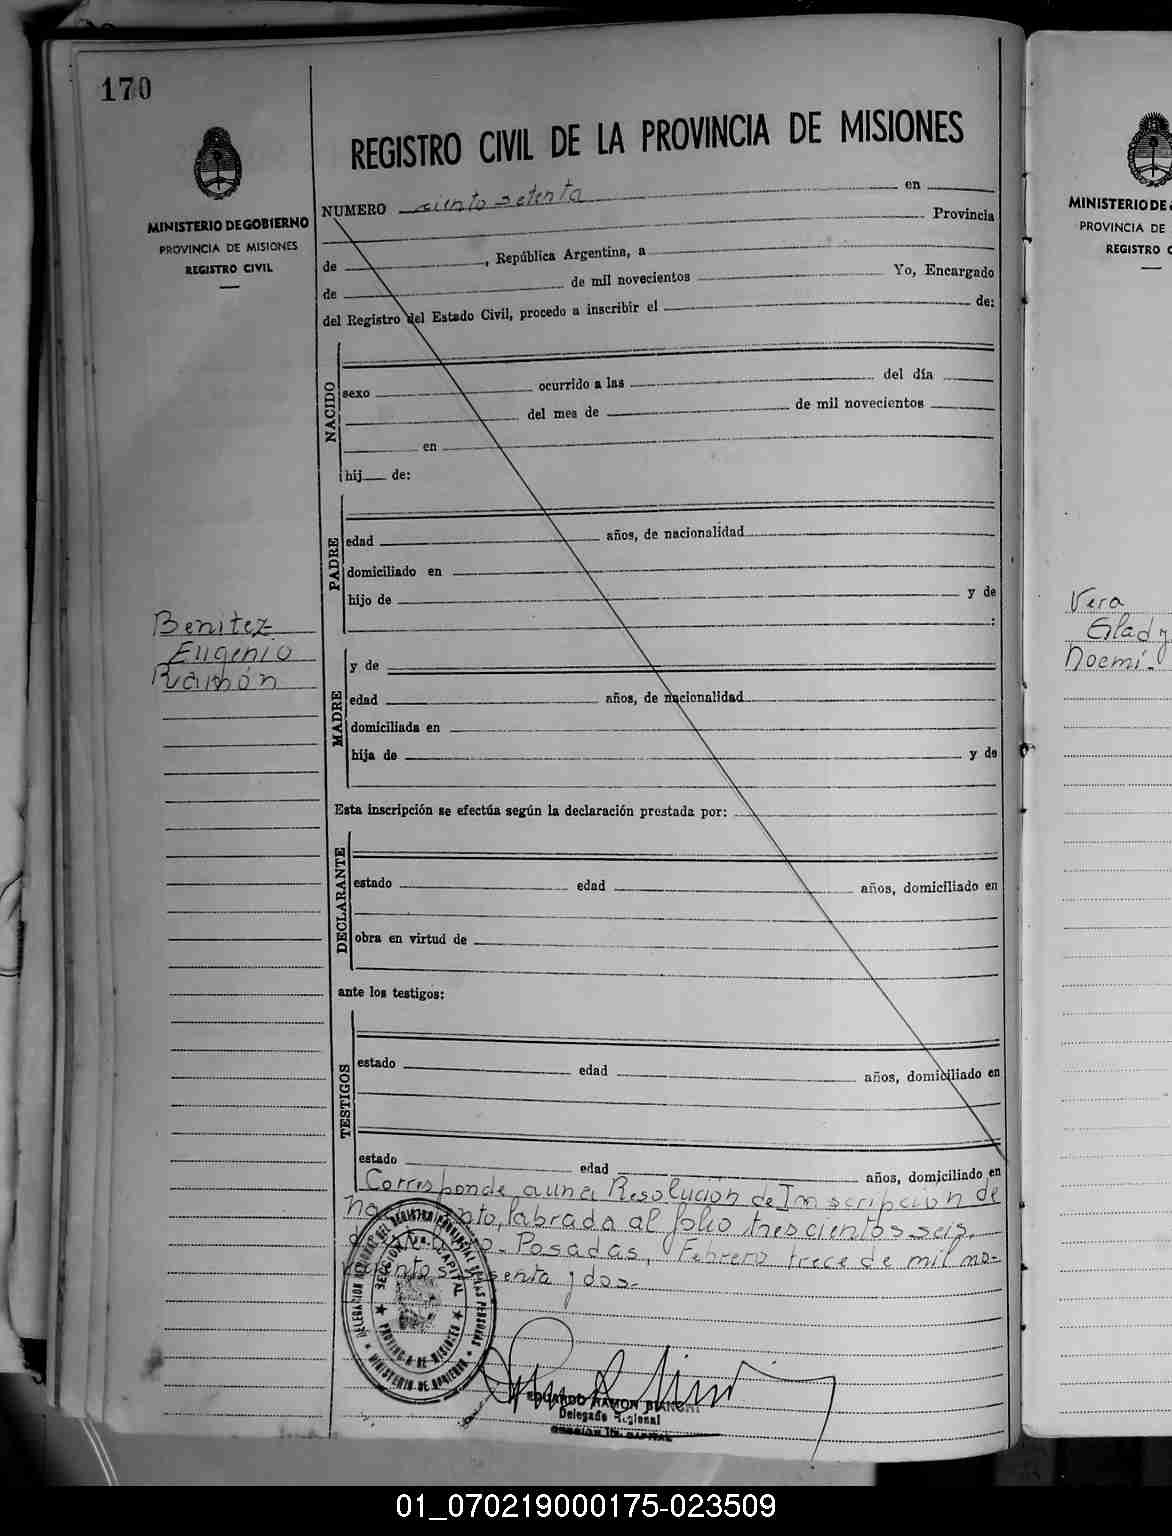 170
REGISTRO CIVIL DE LA PROVINCIA DE MISIONES
MINISTERIO DE GOBIERNO
PROVINCIA DE MISIONES
REGISTRO CIVIL
NUMERO ciento setenta en
Provincia
de , República Argentina, a
de de mil novecientos Yo, Encargado
del Registro del Estado Civil, procedo a inscribir el de:
NACIDO
sexo ocurrido a las del día
del mes de de mil novecientos
en
hij de:
PADRE
edad años, de nacionalidad
domiciliado en
hijo de y de
:
Benitez
Eugenio
Ramón
MADRE
y de
edad años, de nacionalidad
domiciliada en
hija de y de
Esta inscripción se efectúa según la declaración prestada por:
DECLARANTE
estado edad años, domiciliado en
obra en virtud de
ante los testigos:
TESTIGOS
estado edad años, domiciliado en
estado edad años, domiciliado en
Corresponde a una Resolución de Inscripción de
na nto, labrada al folio trescientos seis,
Posadas, Febrero trece de mil no-
cientos senta y dos.-
DELEGACION REGIONAL DEL REGISTRO PROVINCIAL DE LAS PERSONAS
SECCION 1ra. CAPITAL
PROVINCIA DE MISIONES
MINISTERIO DE GOBIERNO
EDUARDO RAMON BIANCHI
Delegado Regional
SECCION 1ra. CAPITAL
MINISTERIO DE
PROVINCIA DE
REGISTRO C
Vera
Glady
Noemí.-
01_070219000175-023509